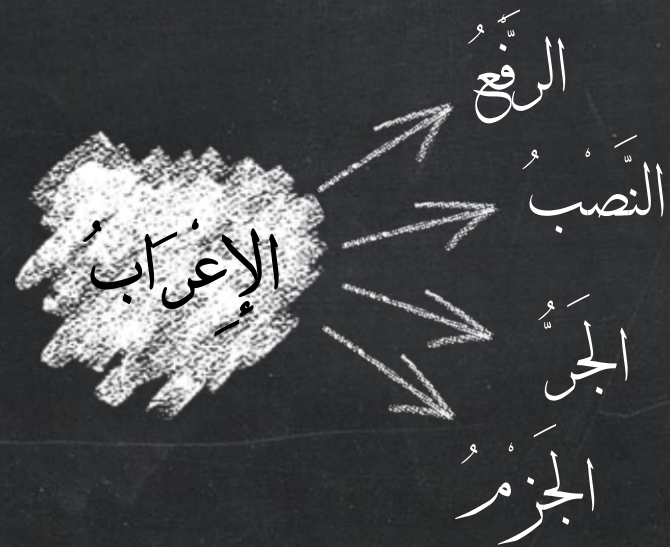 الإِعْرَابُ
الرَّفْعُ
النَّصْبُ
الجَرُّ
الجَزْمُ